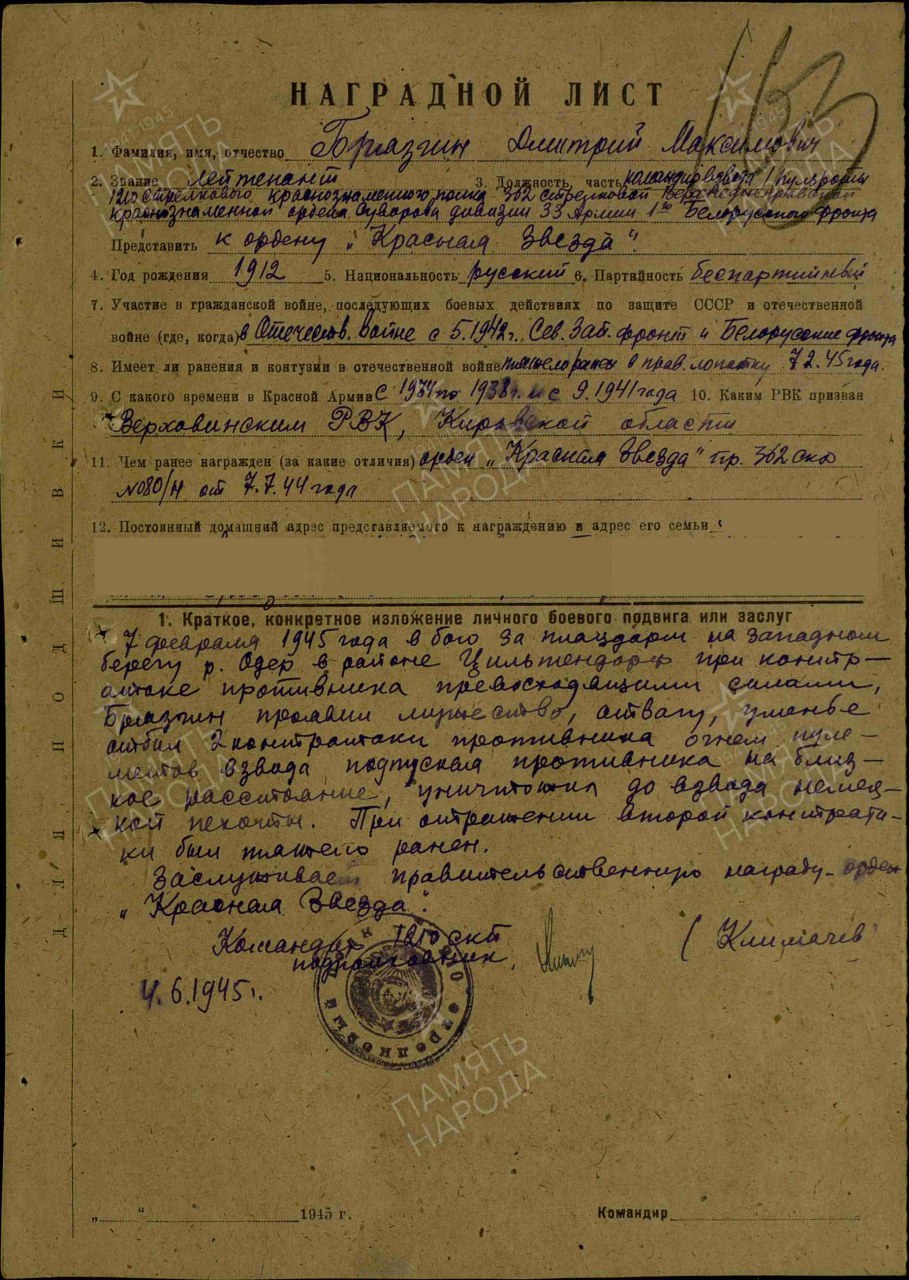 НАГРАДНОЙ ЛИСТ
1. Фамилия, имя, отчество Бразгин Дмитрий Максимович
2. Звание лейтенант 3. Должность, часть командир взвода 1 пульроты
1210 стрелкового краснознаменного полка 362 стрелковой
краснознаменной ордена Суворова дивизии 33 Армии 1го Белорусского фронта
Представить к ордену „Красная Звезда".
4. Год рождения 1912 5. Национальность русский 6. Партийность беспартийный
7. Участие в гражданской войне, последующих боевых действиях по защите СССР и отечественной
войне (где, когда) в Отечеств. войне с 5.1942г. Сев. Зап. фронт и Белорусские фронта
8. Имеет ли ранения и контузии в отечественной войне тяжело ранен в прав. лопатку 7 2.45 года.
9. С какого времени в Красной Армии с 1934 по 1938 г. и с 9.1941 года 10. Каким РВК призван
Верховинским РВК, Кировской области
11. Чем ранее награжден (за какие отличия) орден „Красная Звезда" пр. 362 скд
№080/н от 7.7.44 года
12. Постоянный домашний адрес представляемого к награждению и адрес его семьи
1. Краткое, конкретное изложение личного боевого подвига или заслуг
7 февраля 1945 года в бою за плацдарм на западном
берегу р. Одер в районе Цильтендорф при контр-
атаке противника превосходящими силами,
Бразгин проявил мужество, отвагу, уменье
отбил 2 контратаки противника огнем пуле-
метов взвода, подпуская противника на близ-
кое расстояние, уничтожил до взвода немец-
кой пехоты. При отражении второй контрата-
ки был тяжело ранен.
Заслуживает правительственную награду - орден
„Красная Звезда".
Командир 1210 скп
подполковник (Климачев
4.6.1945г.
„ “ 1945 г. Командир
ДЛЯ ПОДШИВКИ
ПАМЯТЬ НАРОДА
1941-1945